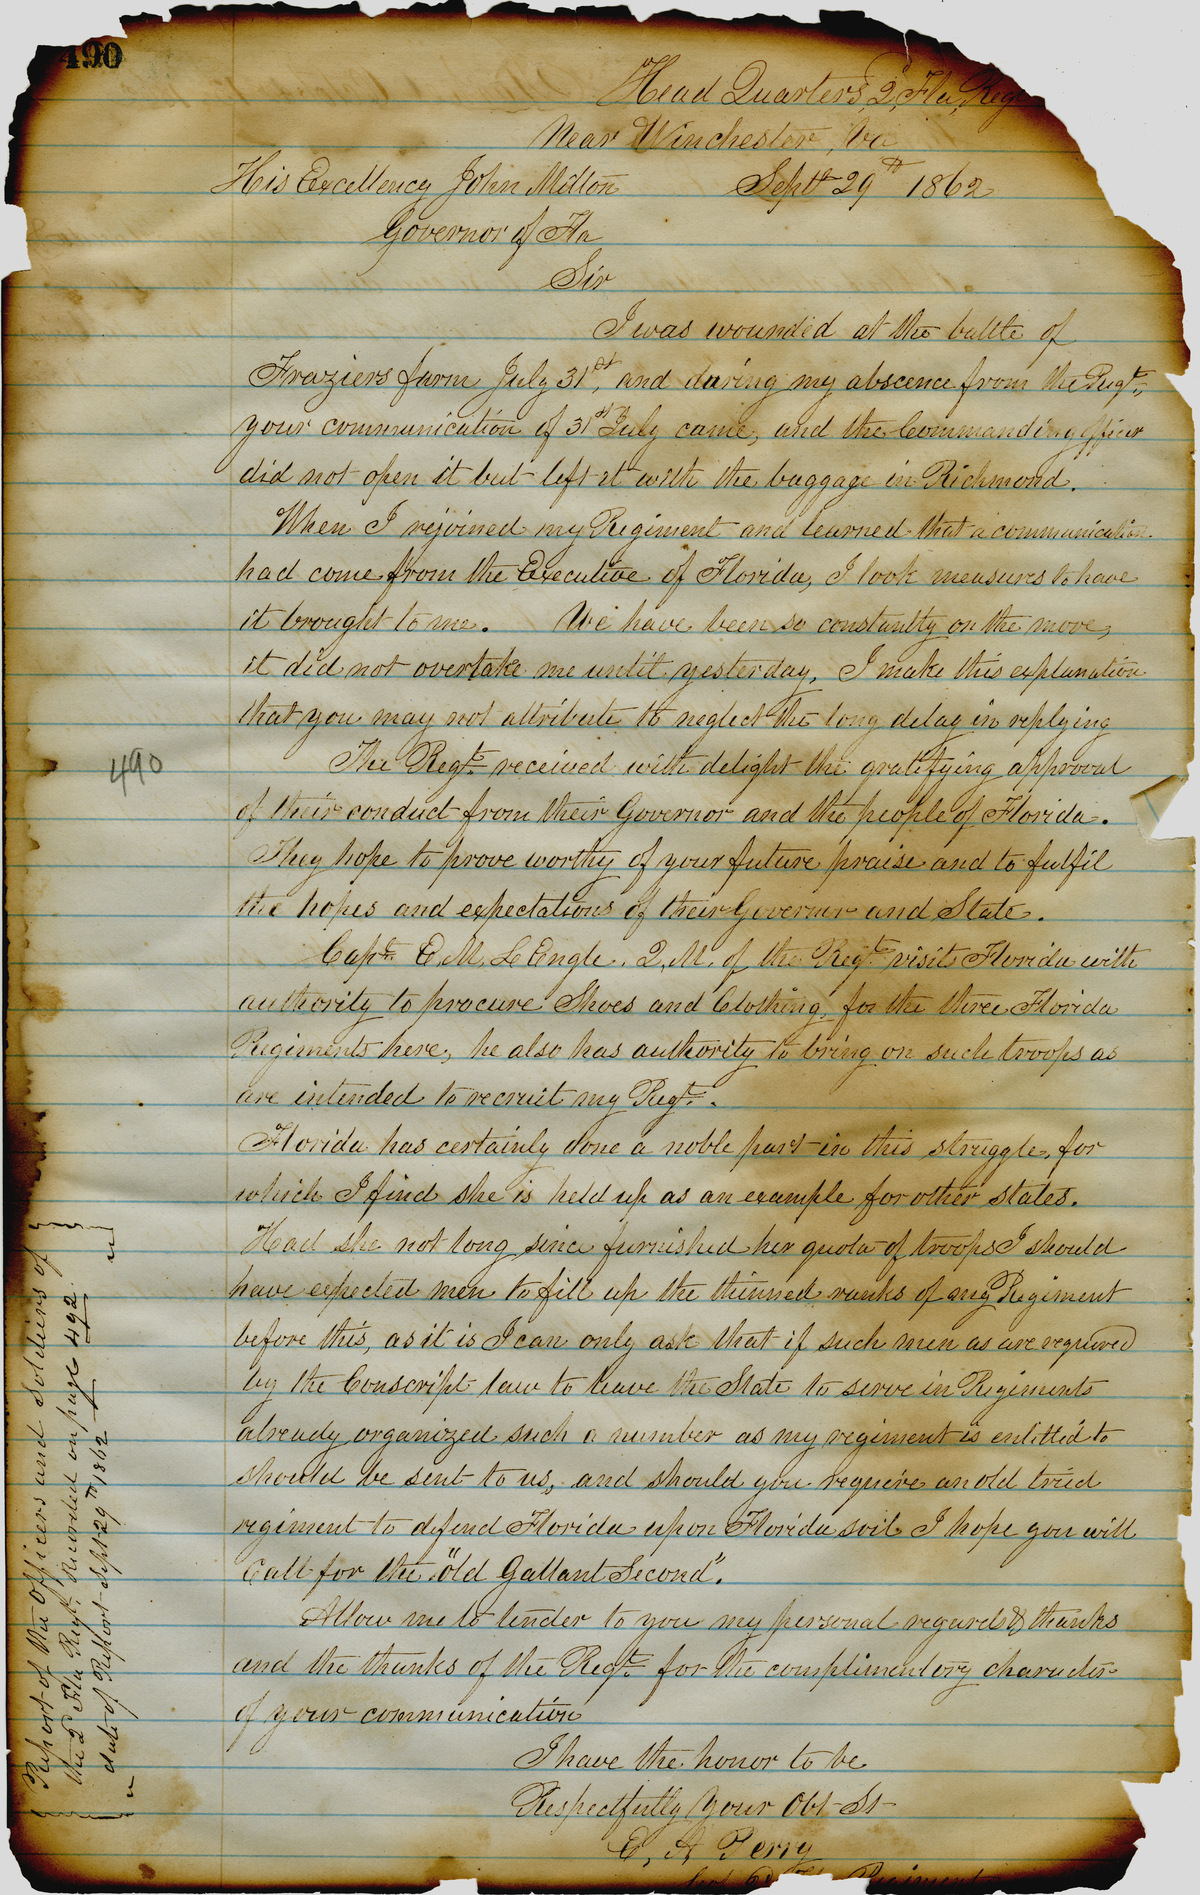 490
Head Quarters, 2d Fla, Reg
Near Winchester, Va
His Excellency John Milton Septr 29th 1862
Governor of Fla
Sir
I was wounded at the battle of
Fraziers farm July 31st, and during my abscence from the Regt,
your communication of 31st July came, and the Commanding officer
did not open it but left it with the baggage in Richmond.
When I rejoined my Regiment and learned that a communication
had come from the Executive of Florida, I took measures to have
it brought to me. We have been so constantly on the move,
it did not overtake me until yesterday. I make this explanation
that you may not attribute to neglect the long delay in replying
The Regt received with delight the gratifying approval
490
of their conduct from their Governor and the people of Florida.
They hope to prove worthy of your future praise and to fulfil
the hopes and expectations of their Governor and State.
Capt E. M. L'Engle. Q. M. of the Regt visits Florida with
authority to procure Shoes and Clothing, for the three Florida
Regiments here, he also has authority to bring on such troops as
are intended to recruit my Regt.
Florida has certainly done a noble part in this struggle, for
which I find she is held up as an example for other states.
Had she not long since furnished her quota of troops I should
have expected men to fill up the thinned ranks of my Regiment
before this, as it is I can only ask that if such men as are required
by the Conscript law to leave the State to serve in Regiments
already organized such a number as my regiment is entitled to
should be sent to us, and should you require an old tried
regiment to defend Florida upon Florida soil I hope you will
Call for the "old Gallant Second".
Allow me to tender to you my personal regards & thanks
and the thanks of the Regt for the complimentary character
of your communication
I have the honor to be
Respectfully Your Obt St
E, A Perry
Regiment
Report of the Officers and Soldiers of
the 2d Fla Regt. Recorded on page 492
date of Report Sept 29th 1862